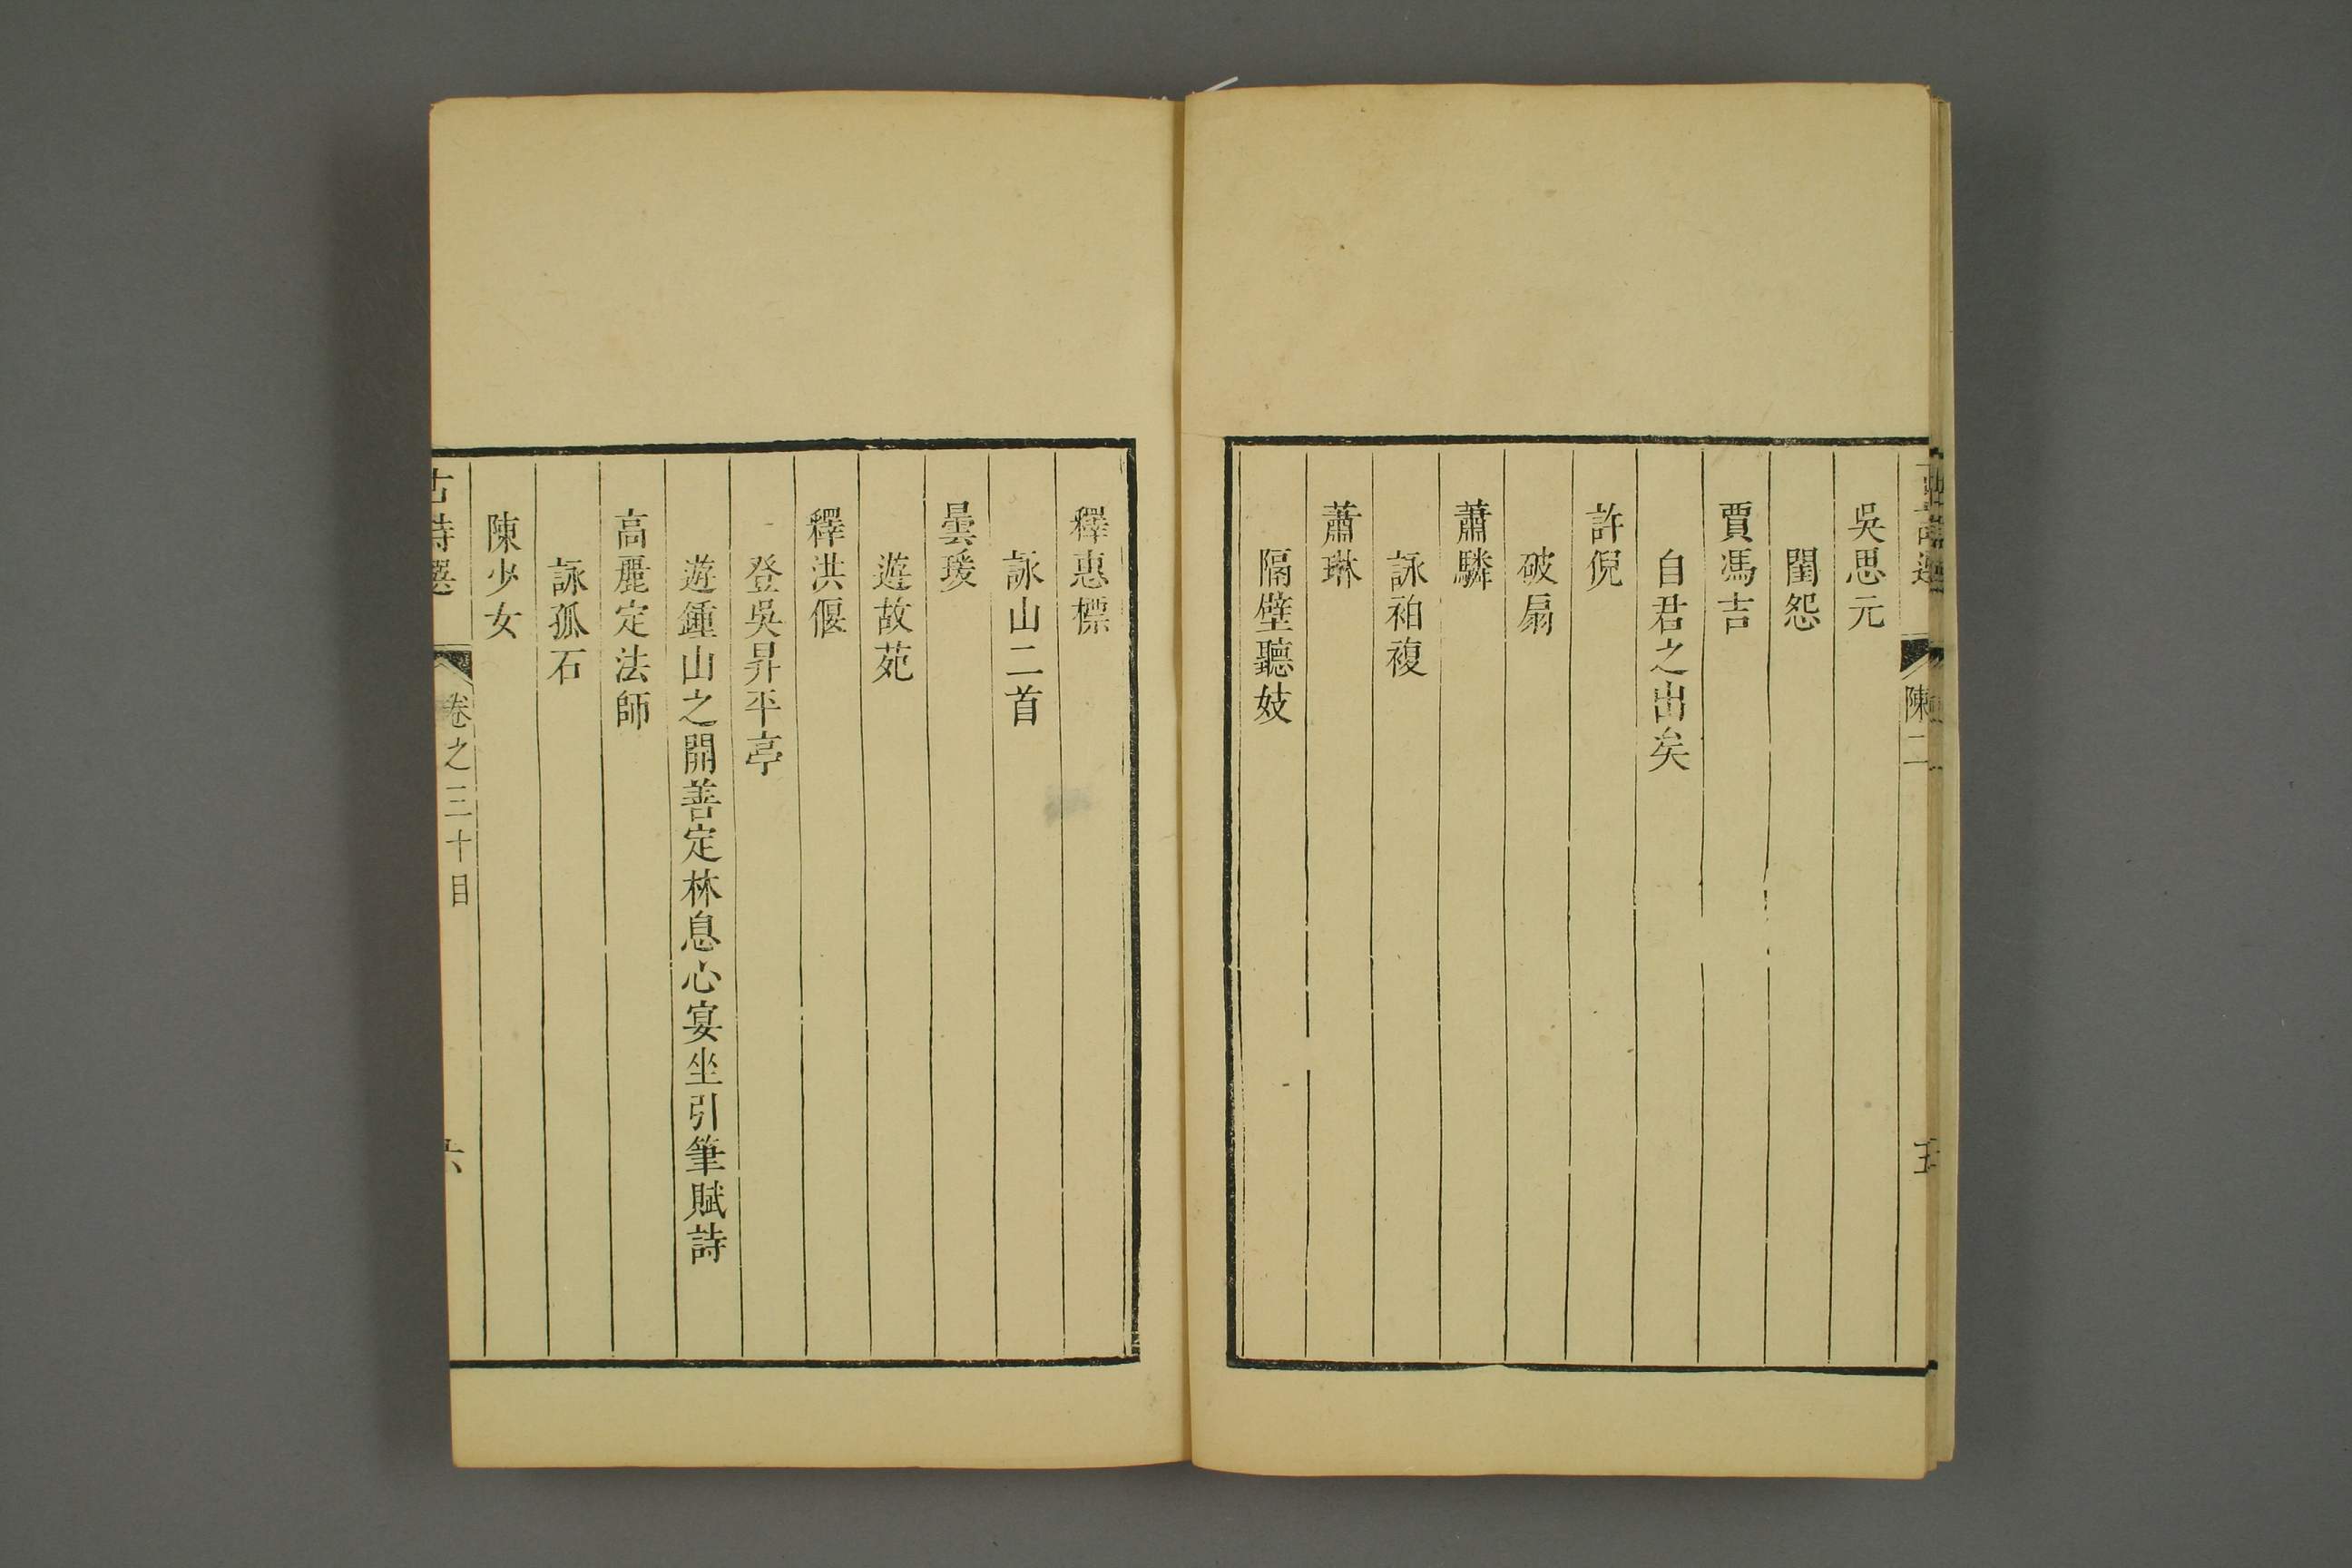 陳二
五
吳思元
閨怨
賈馮吉
自君之出矣
許倪
破扇
蕭驎
詠袙複
蕭琳
隔壁聽妓
釋惠標
詠山二首
曇瑗
遊故苑
釋洪偃
登吳昇平亭
遊鍾山之開善定林息心宴坐引筆賦詩
高麗定法師
詠孤石
陳少女
古詩選
卷之三十目
六